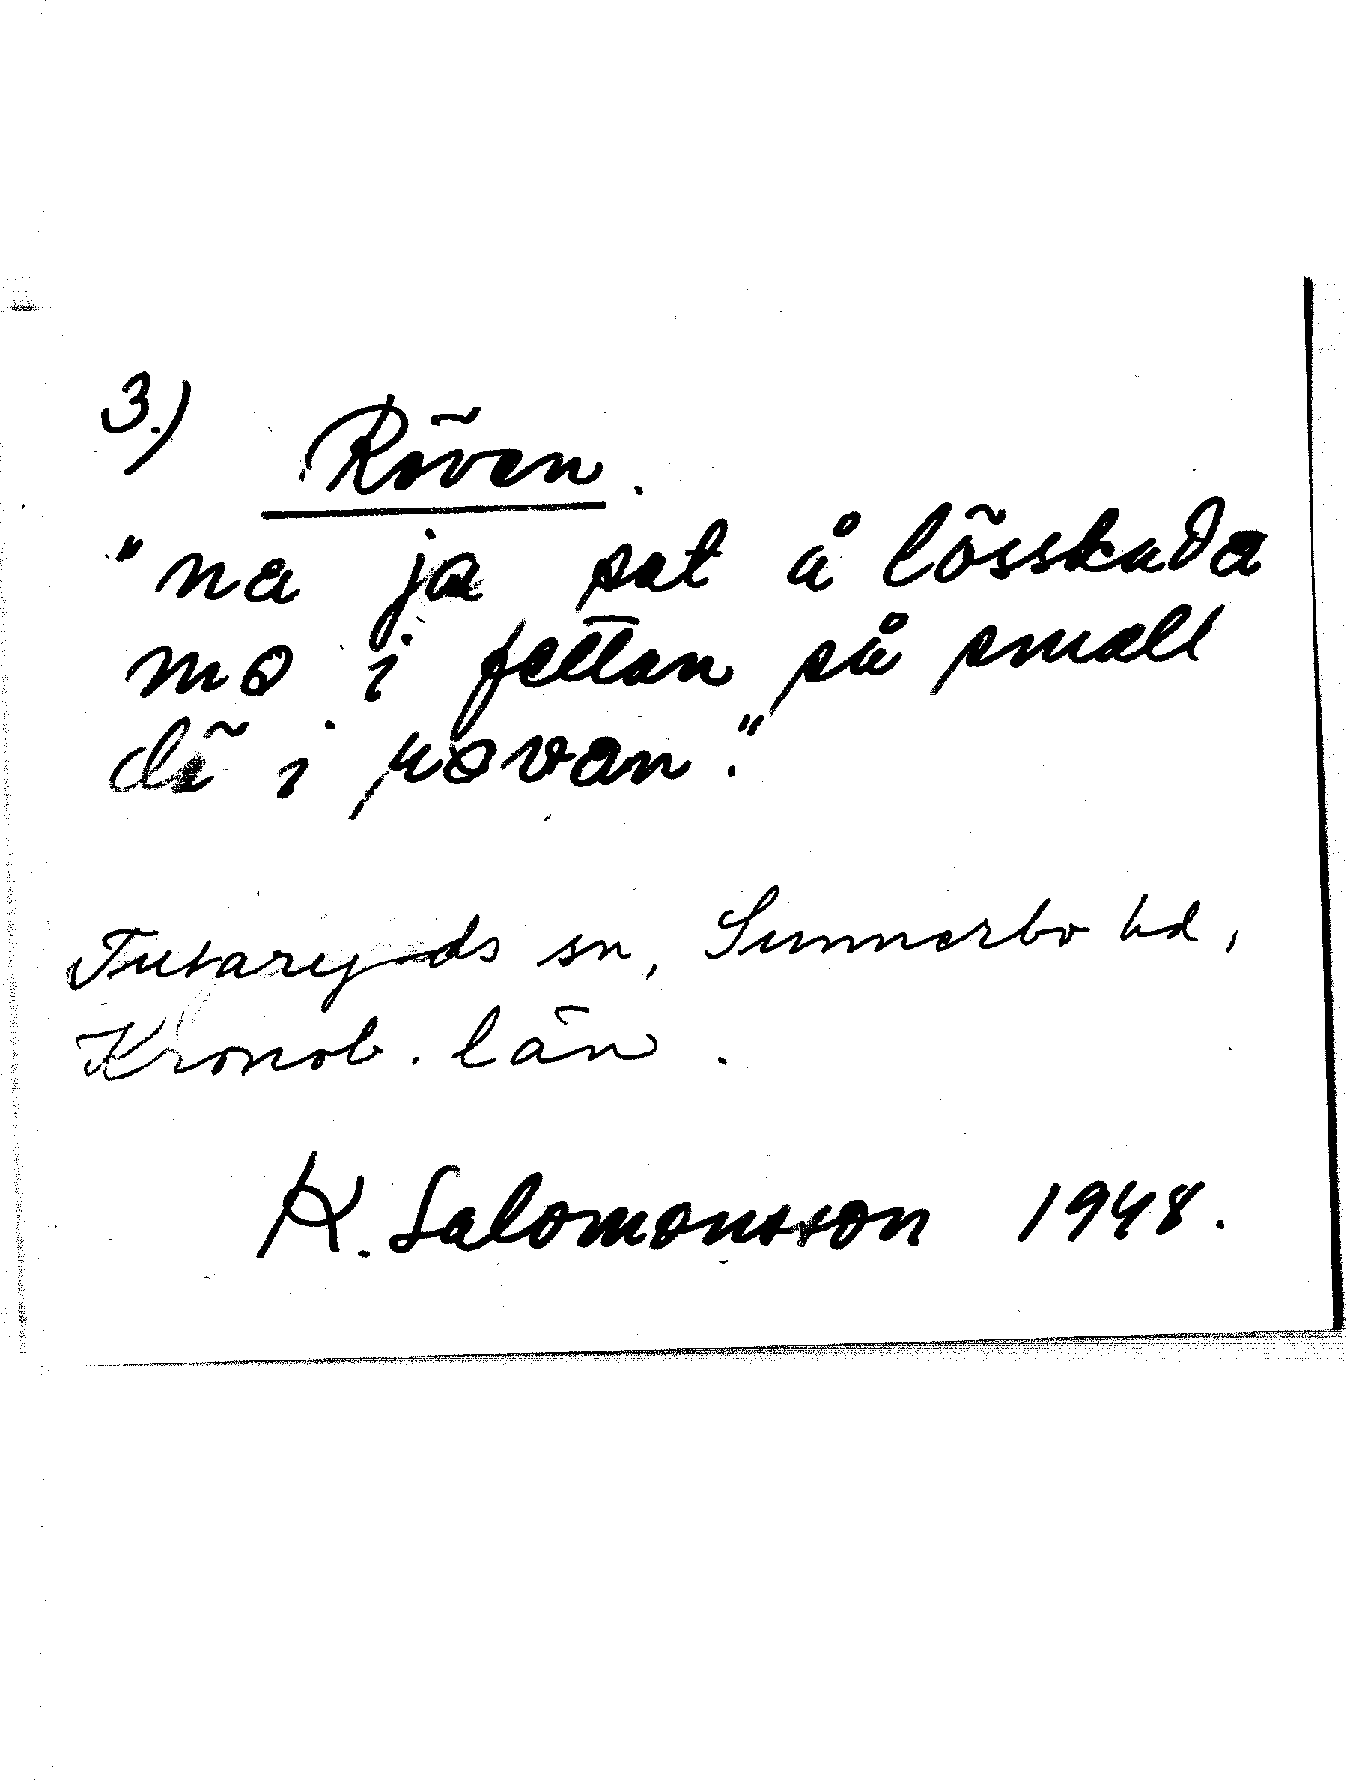 3.)
Röven.
"na ja sat å lösskada
mø i fettan så small
dä i røvan."
Tutaryds sn, Sunnerbo hd,
Kronob. län.
K. Salomonsson 1948.